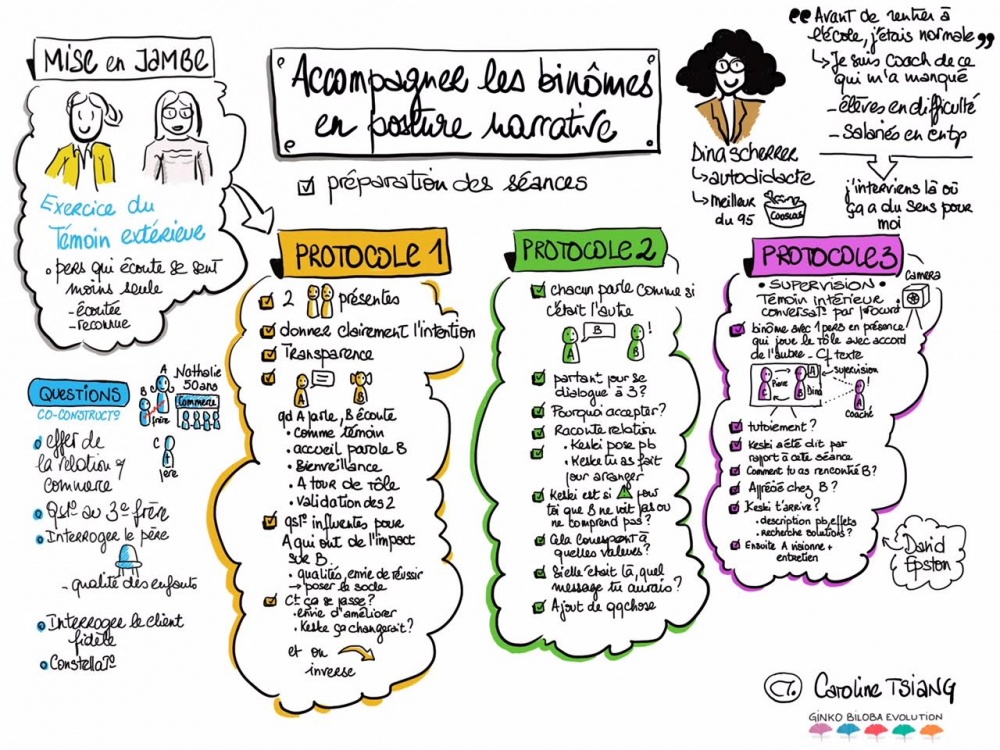 MISE en JAMBE
Exercice du
Témoin extérieur
pers qui écoute se sent
moins seule
- écoutée
- reconnue
Accompagner les binômes
en posture narrative
préparation des séances
Dina scherrer
autodidacte
meilleur
du 95
Couscous
“Avant de rentrer à
l'école, j'étais normale”
Je suis coach de ce
qui m'a manqué
- élèves en difficulté
- Salariés en entp
j'interviens là où
ça a du sens pour
moi
QUESTIONS
CO-CONSTRUCT°
A
B
frère
Nathalie
50 ans
Commerce
C
père
effet de
la relation
commerce
Qst° au 3e frère
Interroger le père
- qualité des enfants
Interroger le client
fidèle
Constellat°
PROTOCOLE 1
2 présentes
donner clairement l'intention
Transparence
A B
qd A parle, B écoute
• comme témoin
• accueil parole B
• Bienveillance
• A tour de rôle
• Validation des 2
qst° influentes pour
A qui ont de l'impact
sur B.
• qualités, envie de réussir
→ poser le socle
Ct ça se passe ?
• envie d'améliorer
• Keske ça changerait ?
et on
inverse
PROTOCOLE 2
chacun parle comme si
c'était l'autre
A B B !
partant pour se
dialogue à 3 ?
Pourquoi accepter ?
Raconte relation
• Keski pose pb
• Keske tu as fait
pour arranger
Keski est si ! pour
toi que B ne voit pas ou
ne comprend pas ?
Cela correspont à
quelles valeurs ?
Si elle était là, quel
message tu aurais ?
Ajout de qqchose
PROTOCOLE 3
Camera
• SUPERVISION •
Témoin intérieur
conversat° par procurat°
binôme avec 1 pers en présence
qui joue le rôle avec accord
de l'autre - Cf texte
C Pierre B A Dina
supervision
! A
Coaché
tutoiement ?
Keski a été dit par
rapport à cette séance
Comment tu as rencontré B ?
Apprécié chez B ?
Keski t'arrive ?
• description pb, effets
• recherche solutions ?
Ensuite A visionne +
entretien
David
Epston
CT. Caroline TSIANG
GINKO BILOBA EVOLUTION